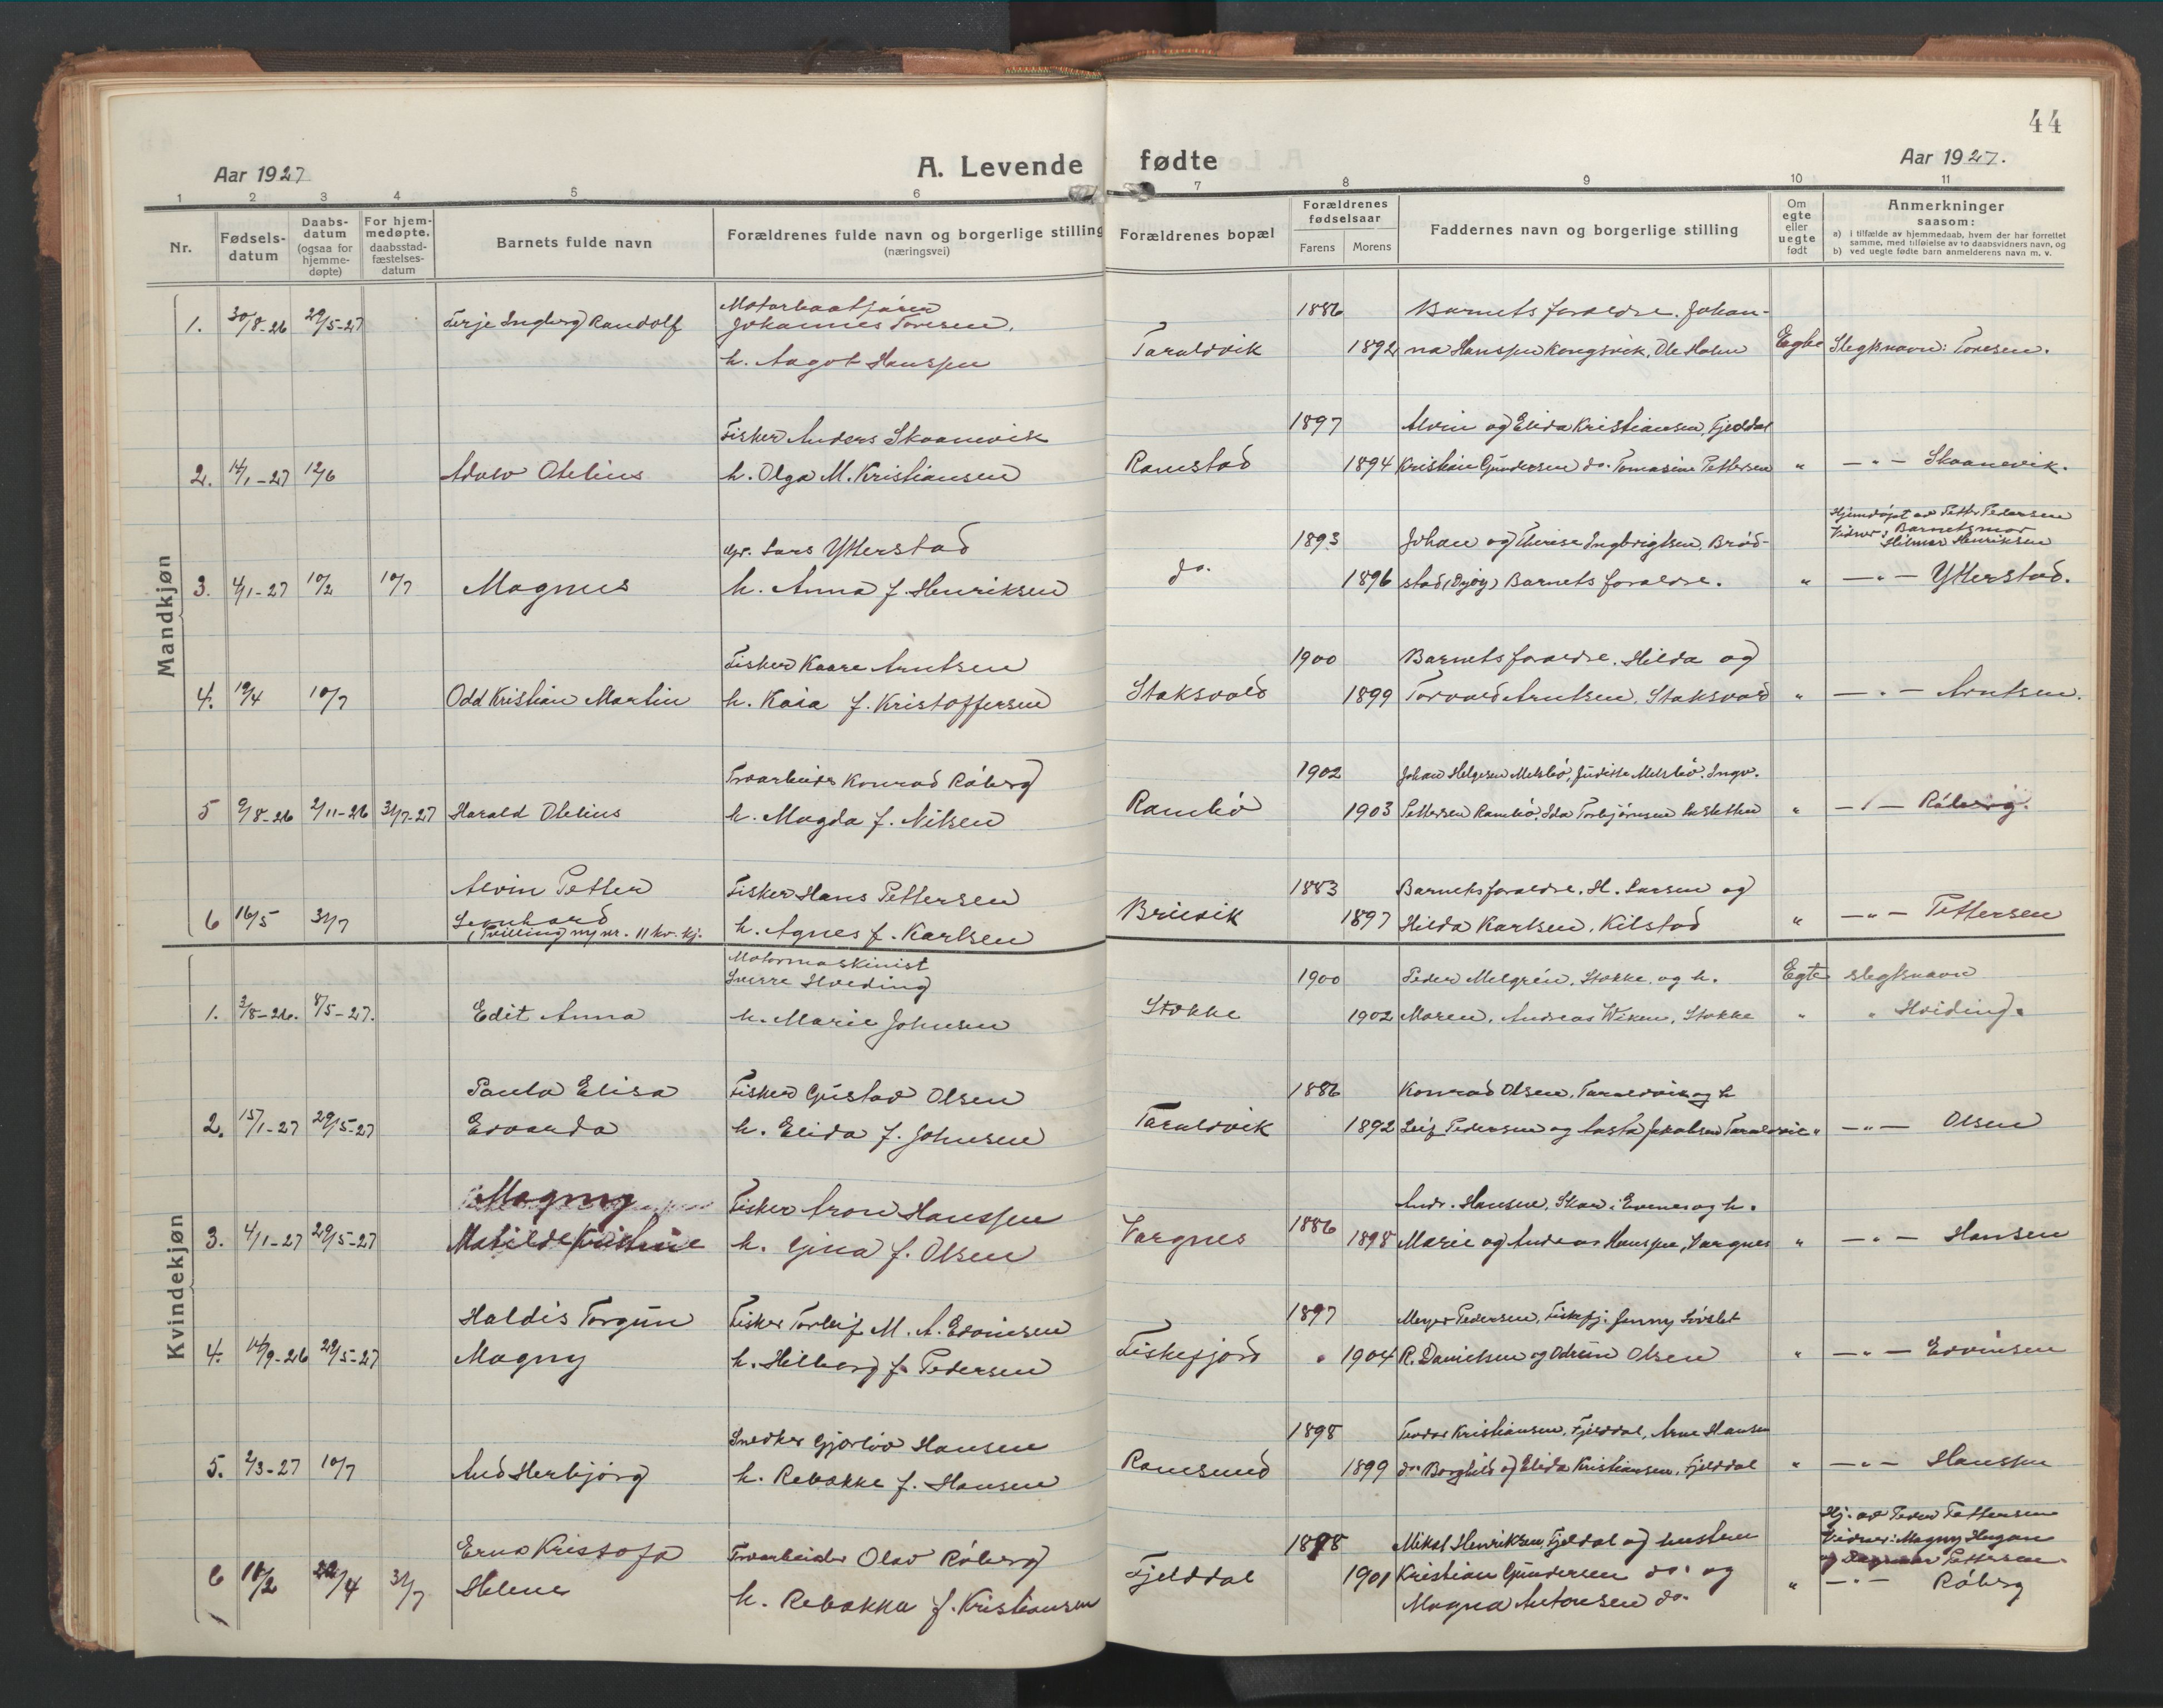 44
Aar 1927
A. Levende fødte
Aar 1927.
1 2 3 4 5 6 7 8 9 10 11
Nr.
Fødsels-
datum
Daabs-
datum
(ogsaa for
hjemme-
døpte)
For hjem-
medøpte.
daabsstad-
fæstelses-
datum
Barnets fulde navn
Forældrenes fulde navn og borgerlige stilling
(næringsvei)
Forældrenes bopæl
Forældrenes
fødselsaar
Farens Morens
Faddernes navn og borgerlige stilling
Om
egte
eller
uegte
født
Anmerkninger
saasom:
a) i tilfælde av hjemmedaab, hvem der har forrettet
samme, med tilføielse av to daabsvidners navn, og
b) ved uegte fødte barn anmelderens navn m. v.
Mandkjøn
Motorbaatfører 1886 Barnets foraldre. Johan-
1. 30/8-26 29/5-27 Terje Ingberg Randolf Johannes Toresen.
h. Aagot Hanssen Taraldvik 1892 na Hanssen Kongsvik, Ole Holm Egte Slegtsnavn: Toresen.
Fisker Anders Skoanevik 1897 Alvin og Elida Kristiansen, Fjeldal
2. 14/1-27 12/6 Otelius h. Olga M. Kristiansen Ramstad 1894 Kristian Gundersen do. Tomasine Pettersen " — " — Skaanevik.
Hjemdøpt av Petter Pedersen
Vidner: Barnets mor
Hilmar Henriksen
Lars Ytterstad 1893 Johan og Therese Ingbrigtsen, Brød-
3. 4/1-27 10/2 10/7 Magnus h. Anna f. Henriksen do. 1896 stad, Barnets foraldre. " — " — Ytterstad.
Fisker Kaare Arntsen 1900 Barnets foraldre. Hilda og
4. 19/4 10/7 Odd Kristian Martin h. Kaia f. Kristoffersen Staksvold 1899 Torvald Arntsen, Staksvold " — " — Arntsen.
Konrad Råberg 1902 Johan Helgesen Melsbø, Melsbø. Ingv.
5 9/8-26 2/11-26 31/7-27 Harald Otelius h. Magda f. Nilsen Rambø 1903 Pettersen Rambø, Ida Torbjørnsen " — " — Råberg.
Alvin Petter Fisker Hans Pettersen 1883 Barnets foraldre. H. Larsen og
6 16/5 31/7 Leonhard h. Agnes f. Karlsen 1897 Hilda Karlsen, Kilstad " — " — Pettersen
(Tvilling nr. 11 kv. kj.
Kvindekjøn
Motormaskinist
Sverre Hveding 1900 Peder Melgrén, Stokke og h. Egte slegtsnavn
1. 3/8-26. 8/5-27. Edit Anna h. Marie Johnsen Stokke 1902 Maren, Andreas Stokke " " Hveding.
Paula Elisa Fisker Gustav Olsen 1886 Konrad Olsen, Taraldvik og h
2. 15/1-27 29/5-27 Edvarda h. Elida f. Johnsen Taraldvik 1892 Leif Pedersen og Jakobsen Taraldvik " — " — Olsen
Magny Fisker Aron Hanssen 1886 Andr. Hansen, Skar i Evenes og h.
3. 4/1-27 29/5-27 Matilde Kristine h. Gina f. Olsen Vargnes 1898 Marie og Andreas Hanssen, Vargnes " — " — Hansen
Haldis Torgun Fisker Torleif M. A. Edvinsen 1897 Meyer Pedersen, Fiskefj. Jenny
4. 14/9-26 29/5-27 Magny h. Hilborg f. Pedersen Fiskefjord 1904 R. Danielsen og Odrun Olsen " — " — Edvinsen
Snedker Gjerløv Hansen 1898 Teodor Kristiansen, Fjelddal, Arne Hansen
5. 2/3-27 10/7 Aud Herbjørg h. Rebakke f. Hansen Ramsund 1899 do. Borghild og Elida Kristiansen, Fjelddal " — " — Hanssen
Hj. av Peder Pettersen
Vidner: Magny Hagan
og Dagmar Pettersen.
Erna Kristofa Olav Råberg 1898 Mikal Henriksen Fjeldal og hustru
6 18/2 22/4 31/7 Helene h. Rebakka f. Kristiansen Fjelddal 1901 Kristian Gundersen do. og " — " — Råberg
Magna Antonsen do.